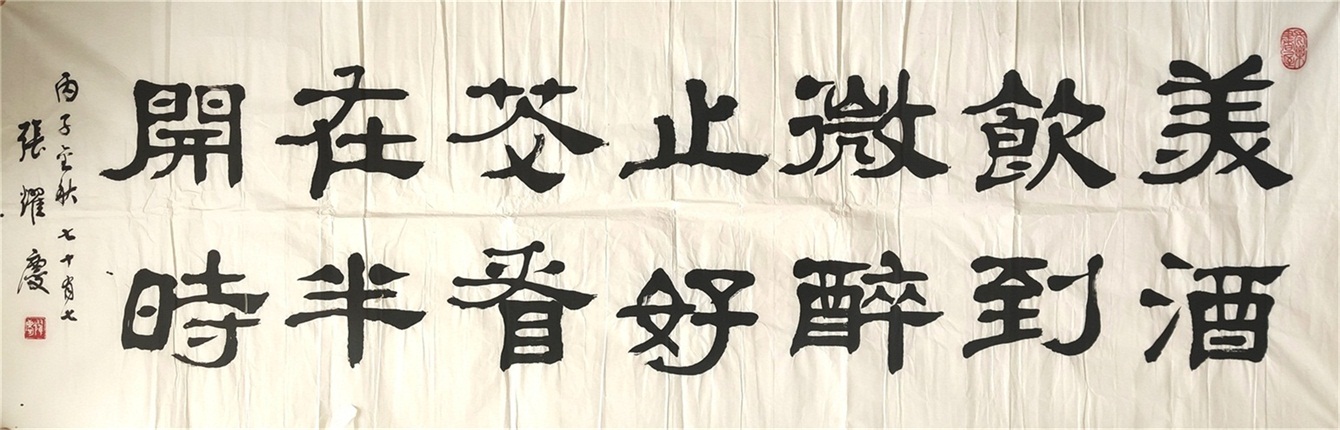 美酒
飲到
微醉
止好
花看
在半
開時
丙子金秋七十有七
張耀慶